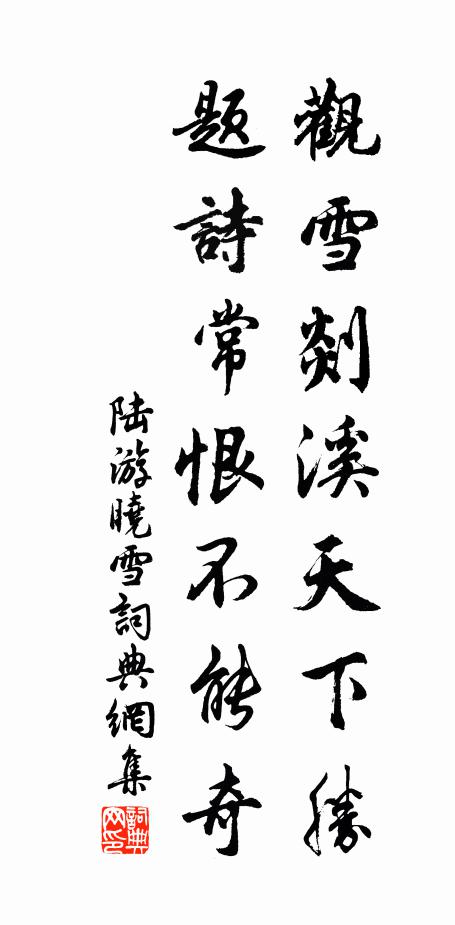 觀雪剡溪天下勝
題詩常恨不能奇
陆游曉雪詞典網集
詞典网印